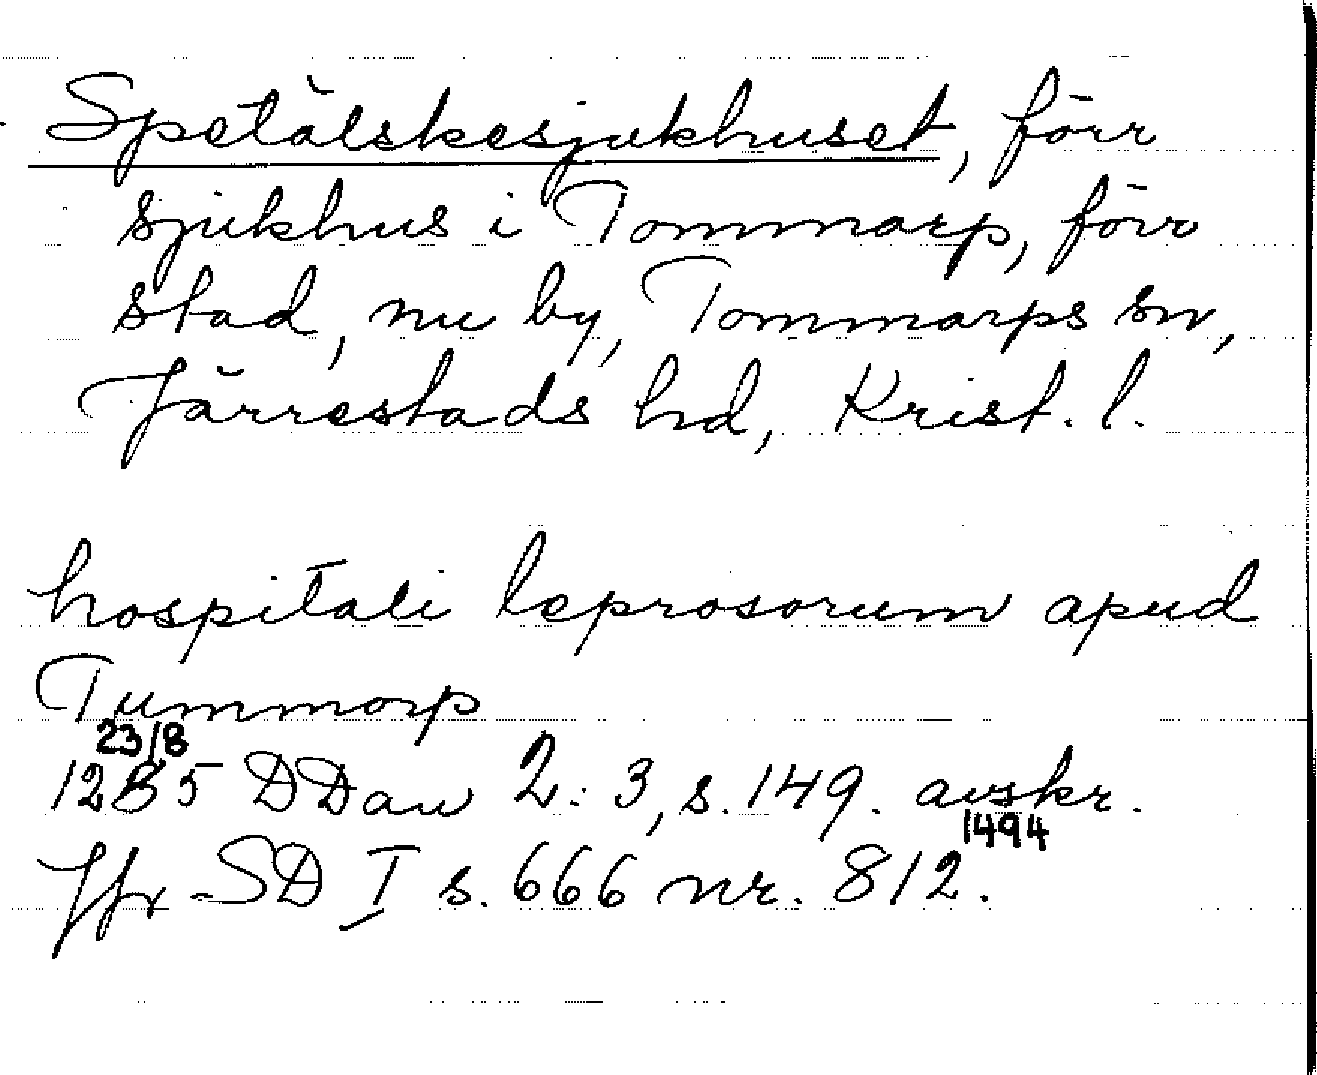 Spetälskesjukhuset, förr
sjukhus i Tommarp, förr
stad, nu by, Tommarps sn,
Järrestads hd, Krist. l.
hospitali leprosorum apud
Tummorp
23/8
1285 DDan 2:3, s. 149. avskr.
1494
Jfr SD I s. 666 nr. 812.